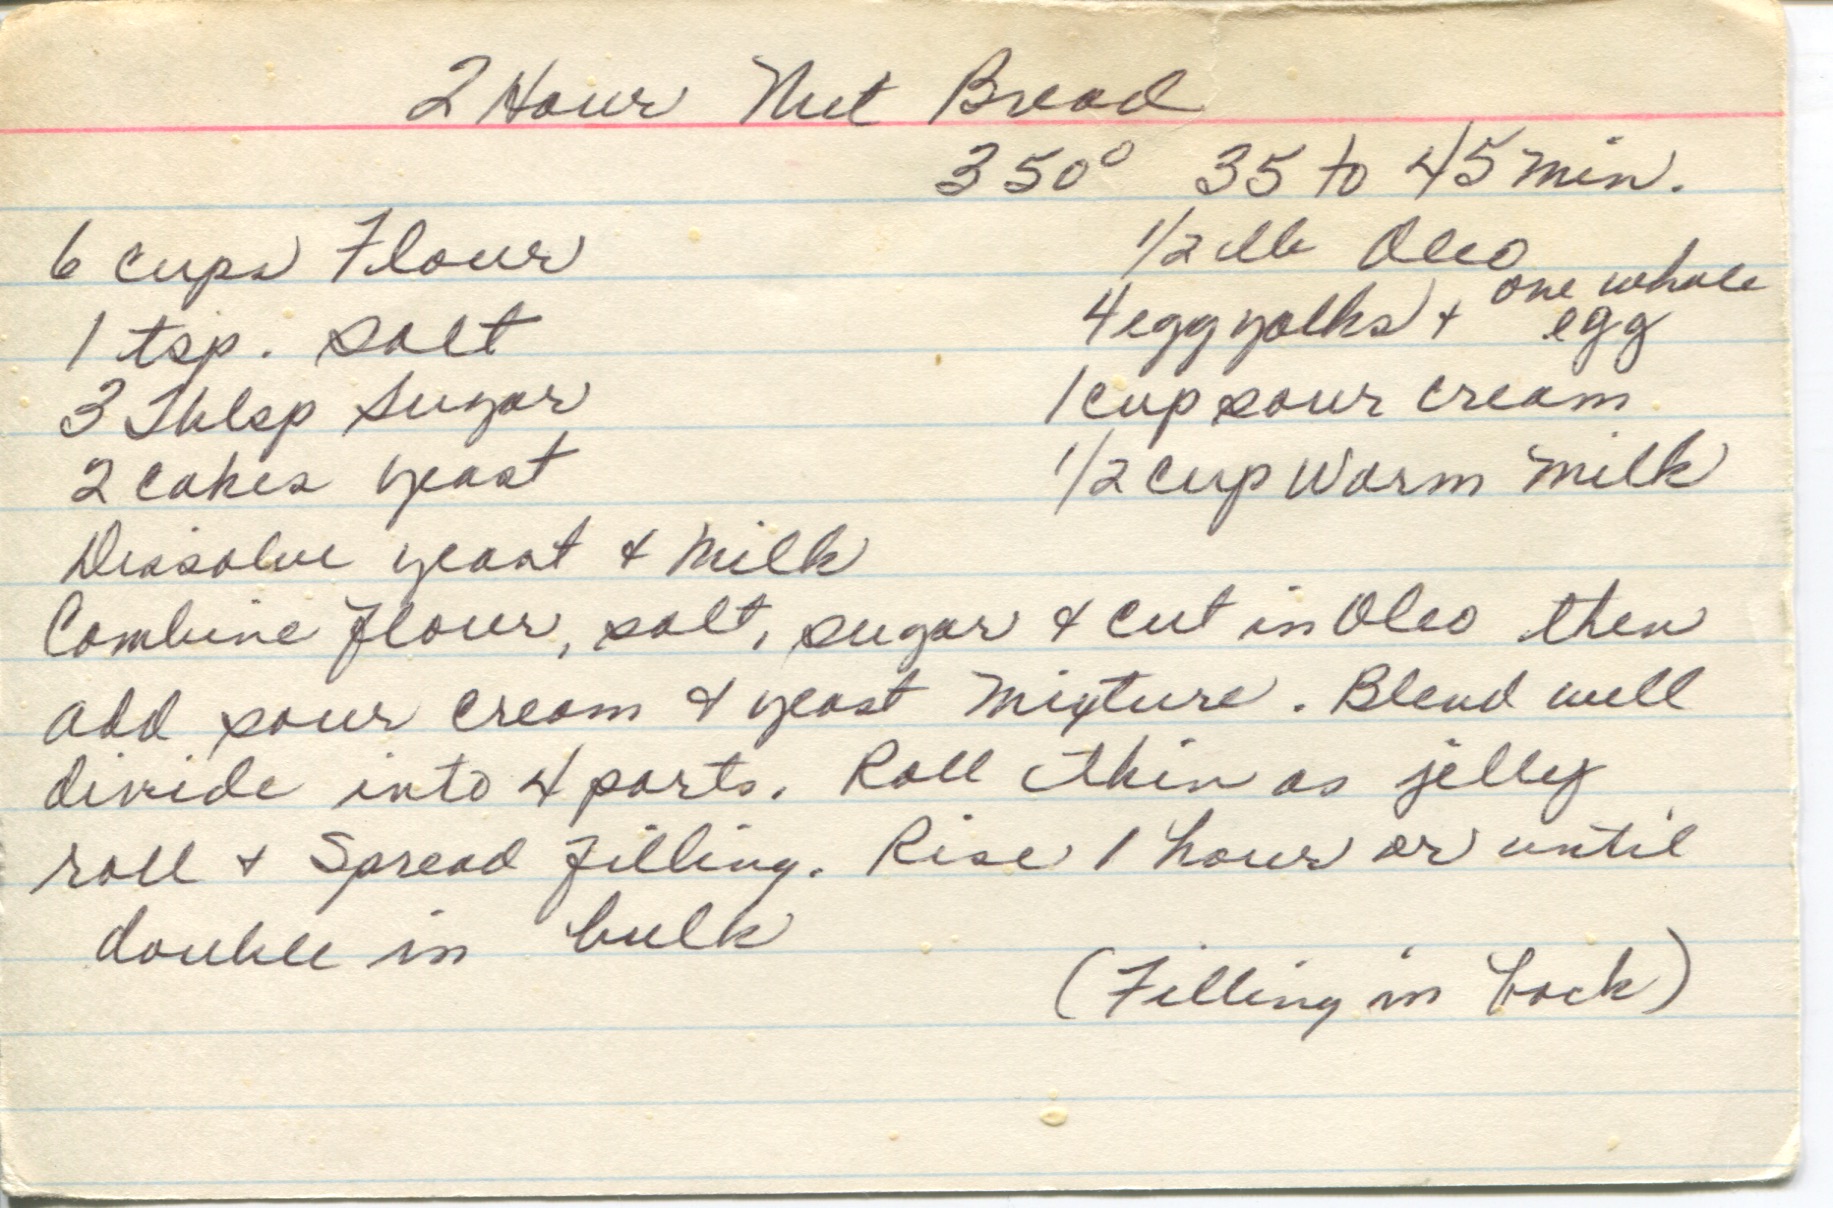 2 Hour Nut Bread
350° 35 to 45 min.
6 cups Flour
1 tsp. salt
3 Tblsp Sugar
2 cakes yeast
1/2 lb Oleo
4 egg yolks + one whole egg
1 cup sour cream
1/2 cup Warm Milk
Dissolve yeast & Milk
Combine flour, salt, sugar & cut in Oleo then
add sour cream & yeast mixture. Blend well
divide into 4 parts. Roll thin as jelly
roll & Spread filling. Rise 1 hour or until
double in bulk
(Filling in back)